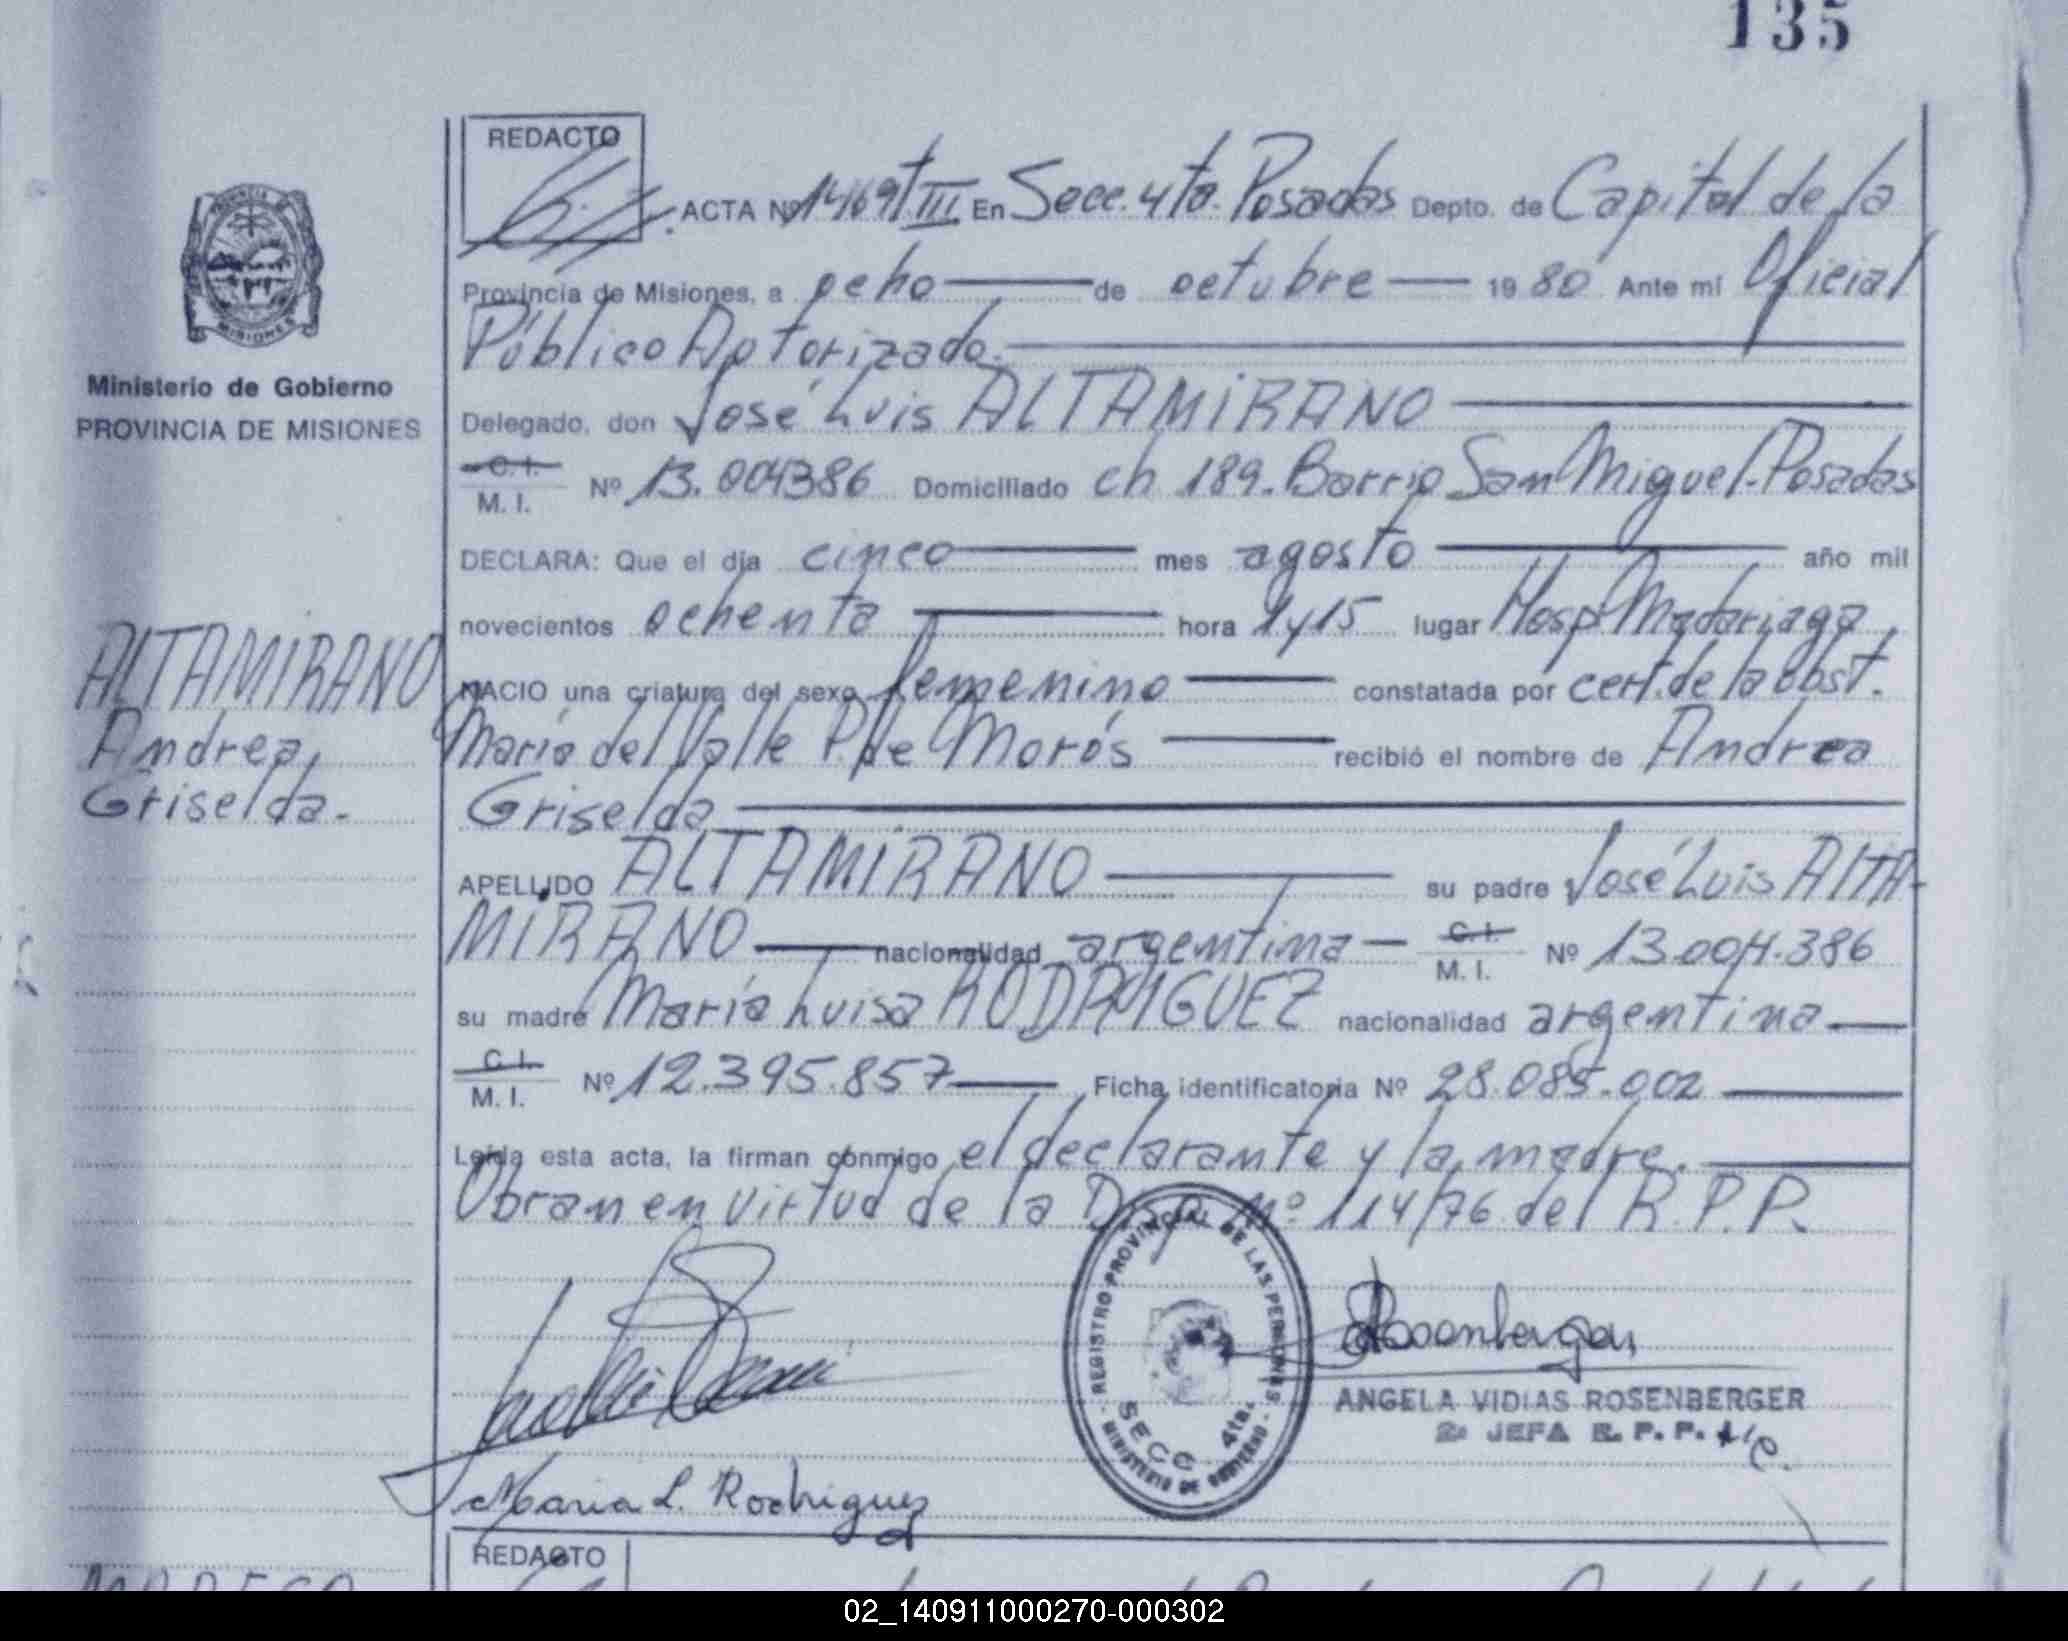 135
REDACTO
ACTA Nº 1469 T III En Secc. 4ta. Posadas Depto. de Capital de la
Provincia de Misiones, a ocho de octubre 1980 Ante mí Oficial
Público Autorizado.
Delegado, don José Luis ALTAMIRANO
C. I.
M. I. Nº 13.004386 Domiciliado ch 189. Barrio San Miguel-Posadas
DECLARA: Que el día cinco mes agosto año mil
novecientos ochenta hora 1y15 lugar Hosp. Madariaga
NACIO una criatura del sexo femenino constatada por cert. de la obst.
María del Valle P. de Morós recibió el nombre de Andrea
Griselda
APELLIDO ALTAMIRANO su padre José Luis ALTA-
MIRANO nacionalidad argentina C. I.
M. I. Nº 13.004.386
su madre María Luisa RODRIGUEZ nacionalidad argentina
C. I.
M. I. Nº 12.395.857 Ficha identificatoria Nº 28.085.002
Leída esta acta, la firman conmigo el declarante y la madre.
Obran en virtud de la Disp. Nº 114/76 del R.P.P.
PROVINCIA
MISIONES
Ministerio de Gobierno
PROVINCIA DE MISIONES
ALTAMIRANO
Andrea
Griselda.
REGISTRO PROVINCIAL DE LAS PERSONAS
SECC 4ta.
MINISTERIO DE GOBIERNO
Rosenberger
ANGELA VIDIAS ROSENBERGER
2ª JEFA R. P. P.
Maria L. Rodriguez
REDACTO
02_140911000270-000302